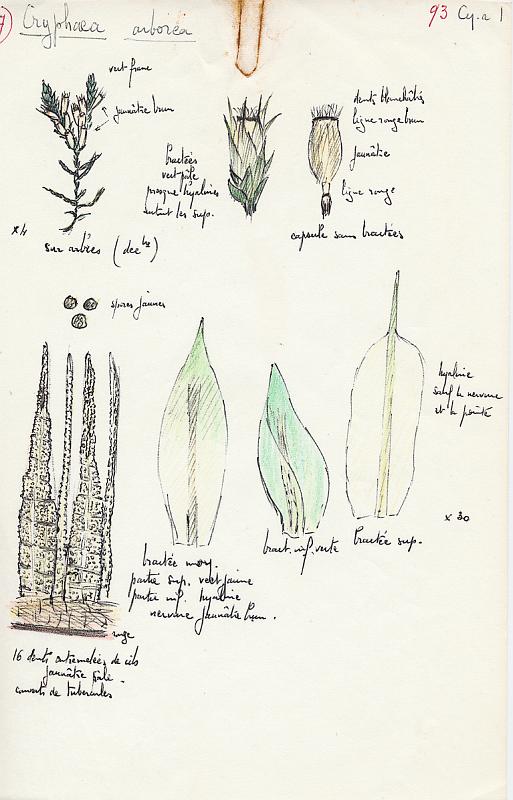 7) Cryphaea arborea
93 Cy.a 1
vert franc
jaunâtre brun
x 4
sur arbres (decbre)
bractées
vert pâle
presque hyalines
surtout les sup.
dents blanchâtres
ligne rouge brun
jaunâtre
ligne rouge
capsule sans bractées
spores jaunes
rouge
16 dents entremêlées de cils
jaunâtre pâle.
couverts de tubercules
bractée moy.
partie sup. vert jaune
partie inf. hyaline
nervure jaunâtre brun.
bract. inf. verte
bractée sup.
hyaline
sauf la nervure
et la pointe
x 30